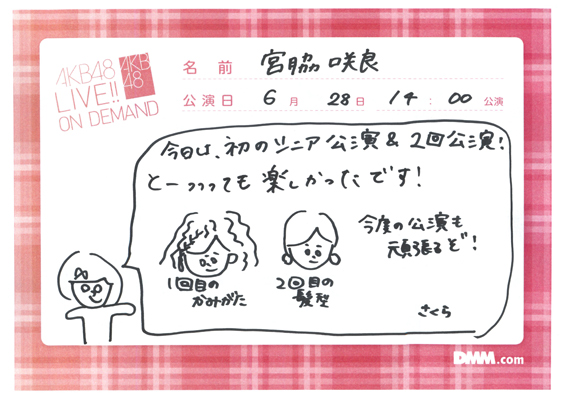 AKB48
LIVE!!
ON DEMAND
AKB
48
名前 宮脇咲良
公演日 6月 28日 14:00公演
今日は、初のシニア公演&2回公演!
とーっっっても楽しかったです!
今度の公演も
頑張るぞ!
1回目の
かみがた
2回目の
髪型
さくら
DMM.com